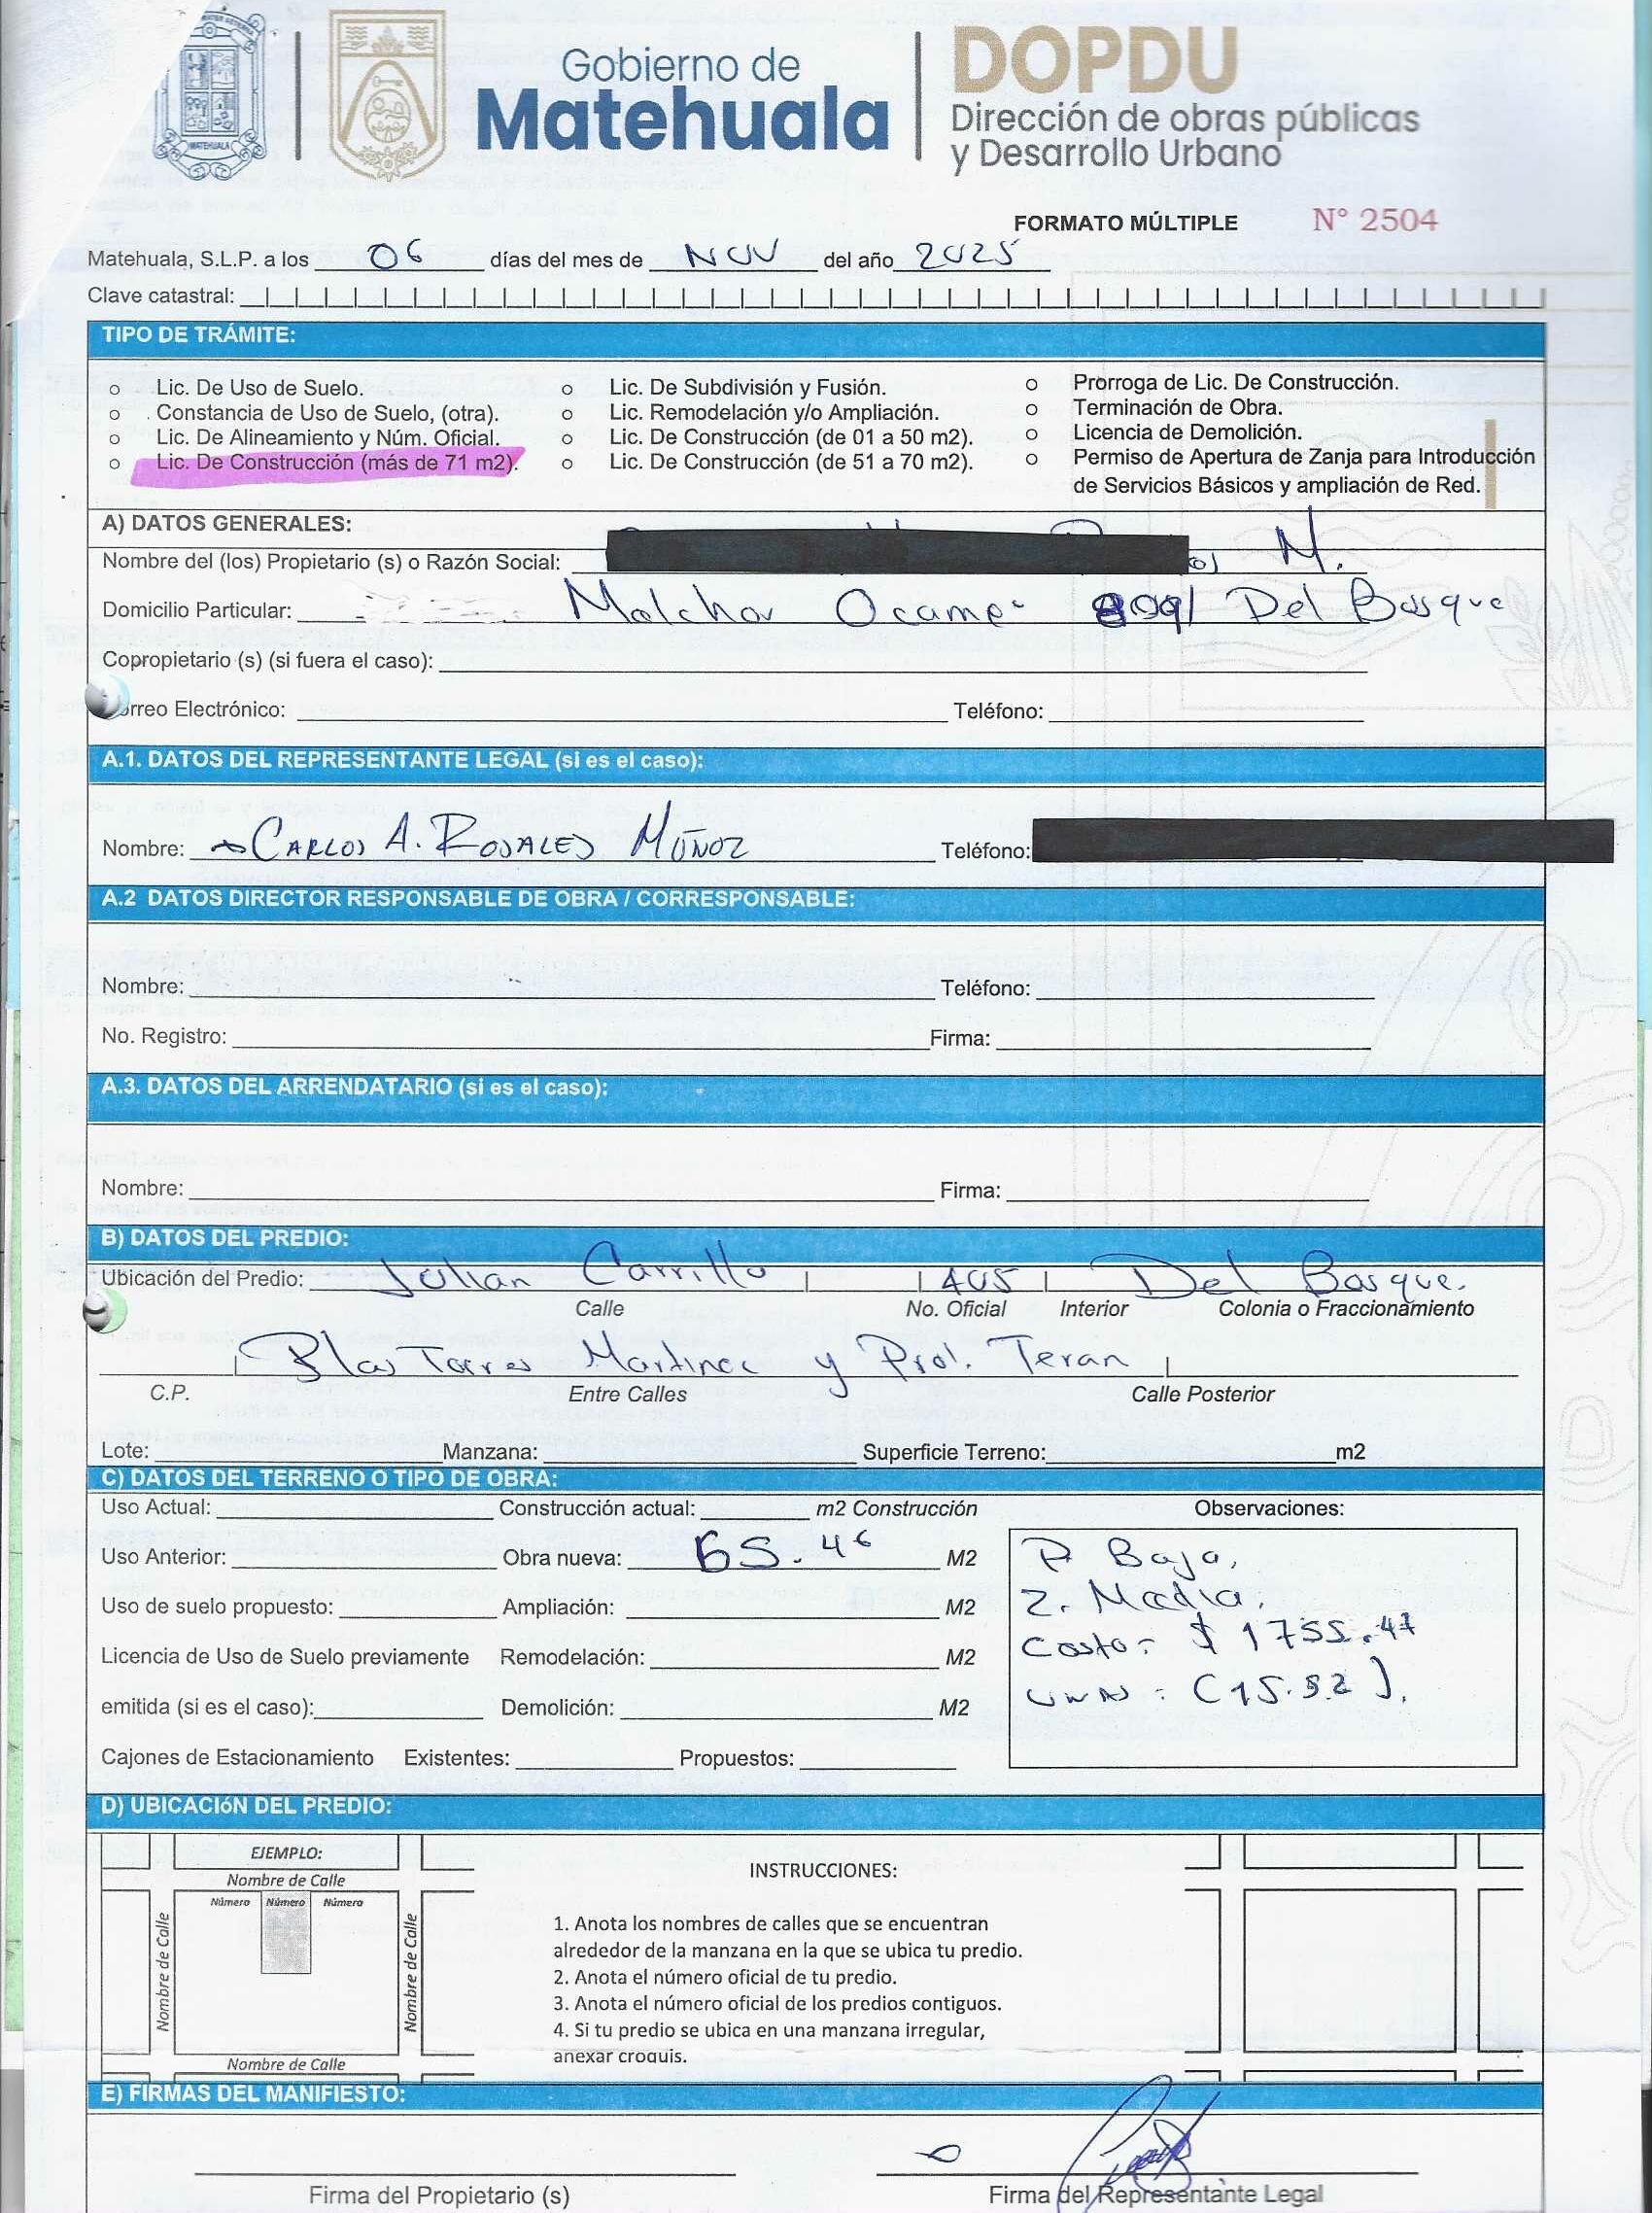 MATEHUALA
Gobierno de
Matehuala
DOPDU
Dirección de obras públicas
y Desarrollo Urbano
FORMATO MÚLTIPLE N° 2504
Matehuala, S.L.P. a los 06 días del mes de NOV del año 2025
Clave catastral:
TIPO DE TRÁMITE:
o Lic. De Uso de Suelo.
o Constancia de Uso de Suelo, (otra).
o Lic. De Alineamiento y Núm. Oficial.
o Lic. De Construcción (más de 71 m2).
o Lic. De Subdivisión y Fusión.
o Lic. Remodelación y/o Ampliación.
o Lic. De Construcción (de 01 a 50 m2).
o Lic. De Construcción (de 51 a 70 m2).
o Prorroga de Lic. De Construcción.
o Terminación de Obra.
o Licencia de Demolición.
o Permiso de Apertura de Zanja para Introducción
de Servicios Básicos y ampliación de Red.
A) DATOS GENERALES:
Nombre del (los) Propietario (s) o Razón Social: M.
Domicilio Particular: Melchor Ocampo Del Bosque
Copropietario (s) (si fuera el caso):
Correo Electrónico: Teléfono:
A.1. DATOS DEL REPRESENTANTE LEGAL (si es el caso):
Nombre: CARLOS A. ROSALES MUÑOZ Teléfono:
A.2 DATOS DIRECTOR RESPONSABLE DE OBRA / CORRESPONSABLE:
Nombre: Teléfono:
No. Registro: Firma:
A.3. DATOS DEL ARRENDATARIO (si es el caso):
Nombre: Firma:
B) DATOS DEL PREDIO:
Ubicación del Predio: Julian Carrillo 405 Del Bosque.
Calle No. Oficial Interior Colonia o Fraccionamiento
Blas Torres Martinez y Prol. Teran
C.P. Entre Calles Calle Posterior
Lote: Manzana: Superficie Terreno: m2
C) DATOS DEL TERRENO O TIPO DE OBRA:
Uso Actual: Construcción actual: m2 Construcción
Uso Anterior: Obra nueva: 65.46 M2
Uso de suelo propuesto: Ampliación: M2
Licencia de Uso de Suelo previamente Remodelación: M2
emitida (si es el caso): Demolición: M2
Cajones de Estacionamiento Existentes: Propuestos:
Observaciones:
P. Baja,
Z. Media,
Costo = $ 1755.47
UMAS : (15.52).
D) UBICACIóN DEL PREDIO:
EJEMPLO:
Nombre de Calle
Número Número Número
Nombre de Calle
Nombre de Calle
Nombre de Calle
INSTRUCCIONES:
1. Anota los nombres de calles que se encuentran
alrededor de la manzana en la que se ubica tu predio.
2. Anota el número oficial de tu predio.
3. Anota el número oficial de los predios contiguos.
4. Si tu predio se ubica en una manzana irregular,
anexar croquis.
E) FIRMAS DEL MANIFIESTO:
Firma del Propietario (s)
Firma del Representante Legal